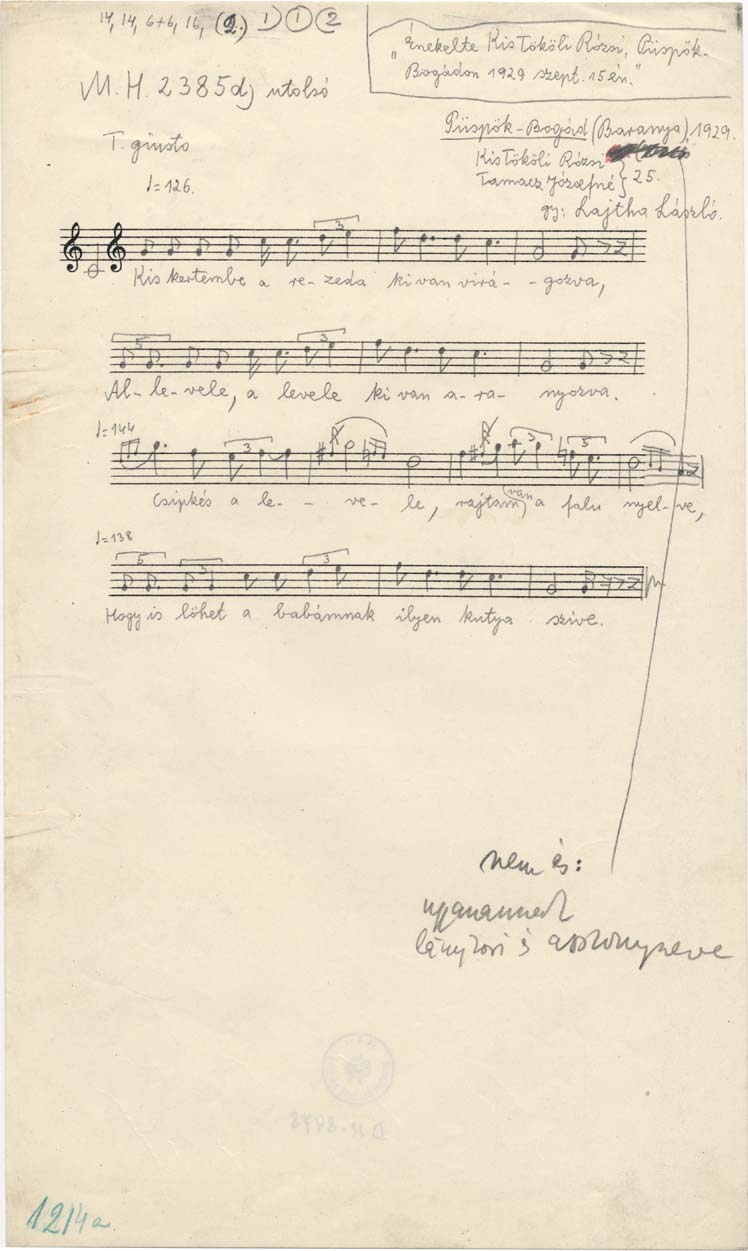 14, 14, 6+6, 16, (2.) 1) 1 2
"Énekelte Kis Tököli Rózsi, Püspök-
Bogádon 1929 szept. 15én."
M. H. 2385d) utolsó
Püspök-Bogád (Baranya) 1929.
T. giusto
Kis Tököli Rózsi
Tamacz Józsefné } 25.
♩=126.
gy: Lajtha László.
3
Kis kertembe a re-zeda ki van virá--gozva,
5 3
Al-le-vele, a levele ki van a-ra-nyozva.
♩=144
3 3 5
Csipkés a le--ve-le, rajtam van a falu nyel-ve,
♩=138
5 3 3
Hogy is löhet a babámnak ilyen kutya szive.
nem és:
ugyanannak
lánykori és asszonyneve
1214a